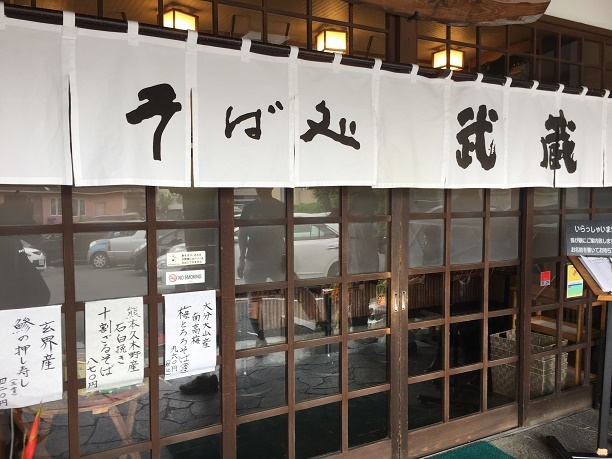 そば処 武蔵
NO SMOKING
大分大山産
南高梅
梅とろろそば
九六〇円
熊本久木野産
石臼挽き
十割ざるそば
八七〇円
玄界産
鯵の押し寿し
いらっしゃいませ